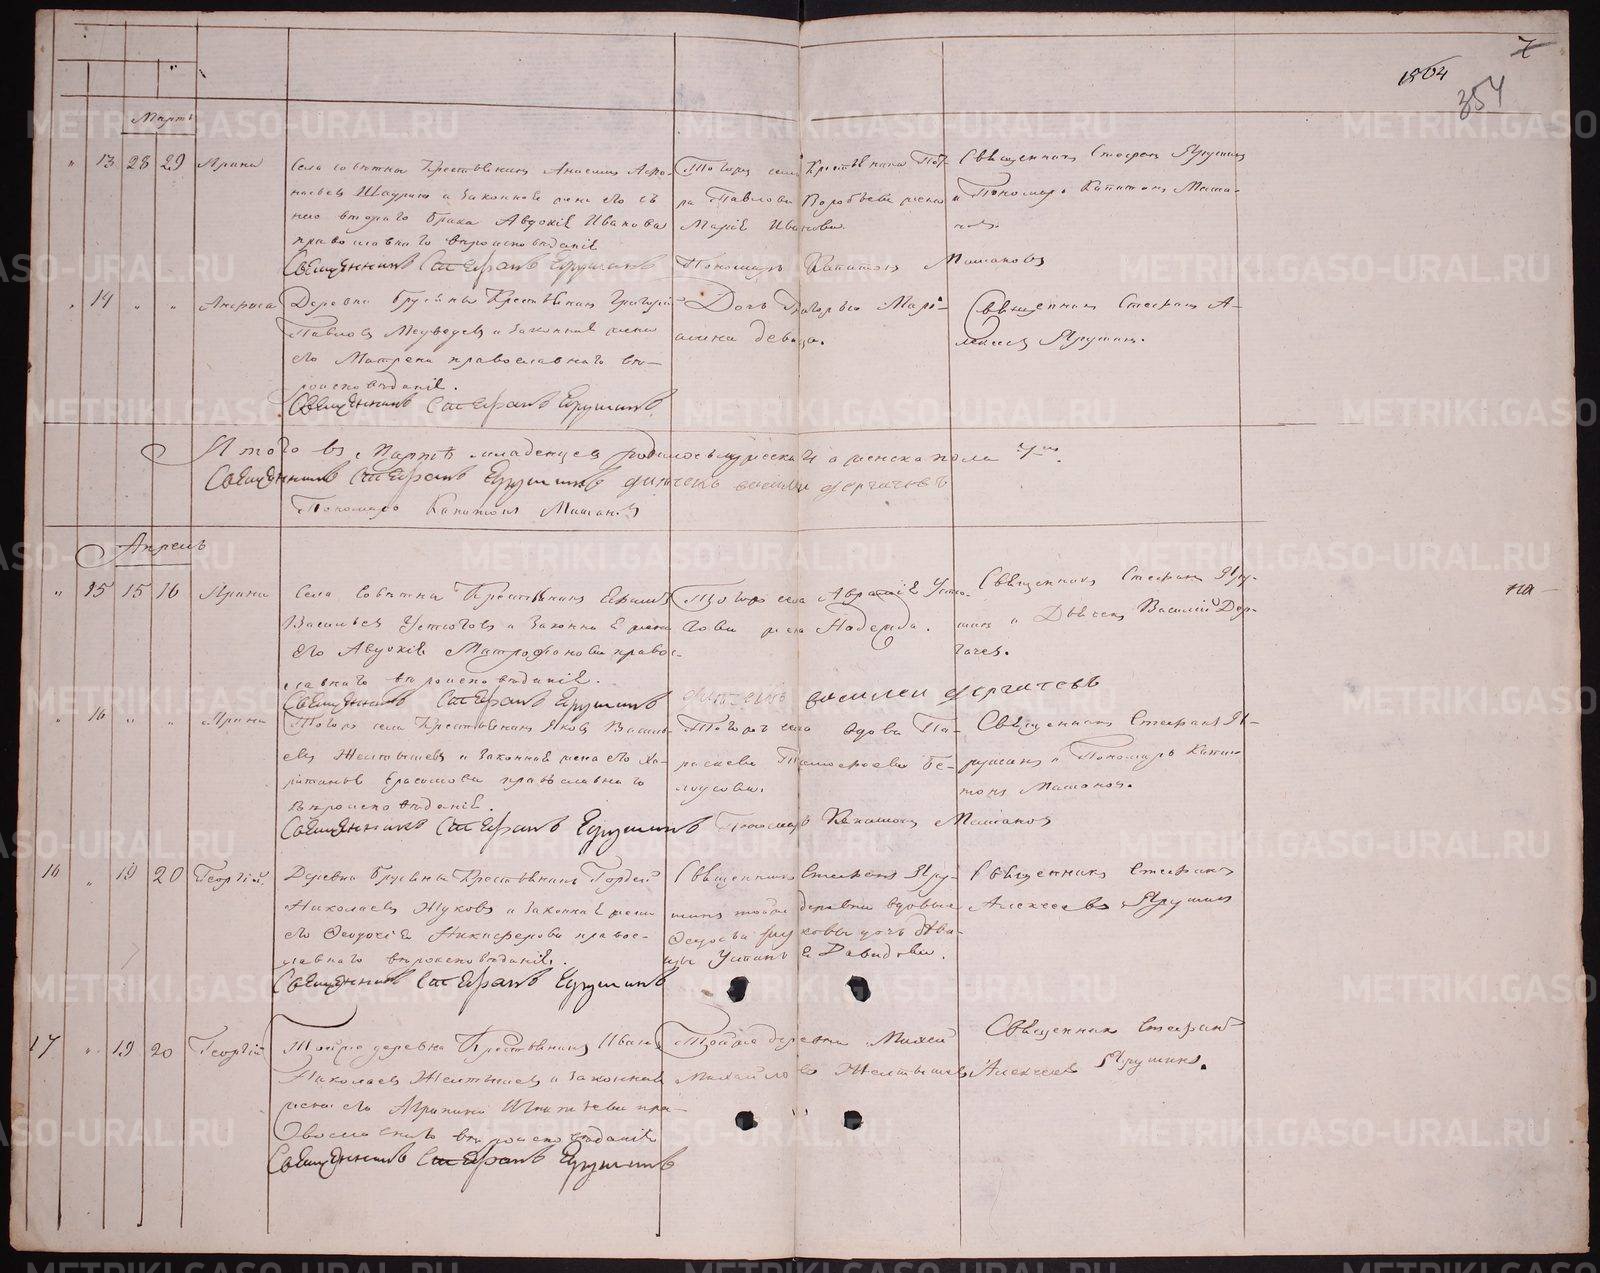 7
1864
354
Мартъ
" 13 28 29 Ирина
Села Совѣтна Крестьянинъ Анисимъ Афо-
насьевъ и законная жена его съ
нею втораго брака Авдокія Иванова
православнаго вѣроисповѣданія
Священникъ Стефанъ Ерушинъ
Тогожъ села Крестьянина Пет-
ра Павлова Воробьева жена
Марія Иванова.
Пономарь Капитонъ
Священникъ Стефанъ Ярушинъ
и Пономарь Капитонъ
" 14 " " Анфиса
Деревни Крестьянинъ Григорій
Павловъ Медведевъ и законная жена
его Матрена православнаго вѣ-
роисповѣданія.
Священникъ Стефанъ Ерушинъ
Дочь Григорья Марі-
амна девица.
Священникъ Стефанъ А-
лексеевъ Ярушинъ.
Итого въ Мартѣ младенцевъ родилось мужеска а женска пола
Священникъ Стефанъ Ерушинъ дьячекъ василеи дергачевъ
Пономарь Капитонъ
Апрель
" 15 15 16 Ирина
Села Совѣтна Крестьянинъ
Васильевъ Устюговъ и Законная жена
его Авдокія Митрофанова правос-
лавнаго вѣроисповѣданія.
Священникъ Стефанъ Ерушинъ
Тогожъ села Авраамія Устю-
гова жена Надежда.
дьячекъ василеи дергачевъ
Священникъ Стефанъ Яру-
шинъ и Дьячекъ Василій Дер-
гачев.
на
" 16 " " Ирина
Тогожъ села Крестьянинъ Яковъ Василь-
евъ Желтышевъ и законная жена его Ха-
ритинья Герасимова православнаго
вѣроисповѣданія.
Священникъ Стефанъ Ерушинъ
Тогожъ села вдова Па-
раскева Тимофеева Бе-
лоусова.
Пономарь Капитонъ
Священникъ Стефанъ Я-
рушинъ и Пономарь Капи-
тонъ
16 " 19 20 Георгій.
Деревни Крестьянинъ Гордей
Николаевъ Жуковъ и Законная жена
его Феодосія Никифорова правос-
лавнаго вѣроисповѣданія.
Священникъ Стефанъ Ерушинъ
Священникъ Стефанъ Яру-
шинъ тойже деревни вдовы
Федосьи Жуковы дочь дѣви-
цы Давидова.
Священникъ Стефанъ
Алексеевъ Ярушинъ
17 " 19 20 Георгій
Тойже деревни Крестьянинъ Иванъ
Николаевъ Желтышевъ и Законная
жена его Агрипина Игнатьева пра-
вославнаго вѣроисповѣданія
Священникъ Стефанъ Ерушинъ
Тойже деревни Михей
Михайловъ Желтышевъ
Священникъ Стефанъ
Алексеевъ Ярушинъ.
METRIKI.GASO-URAL.RU